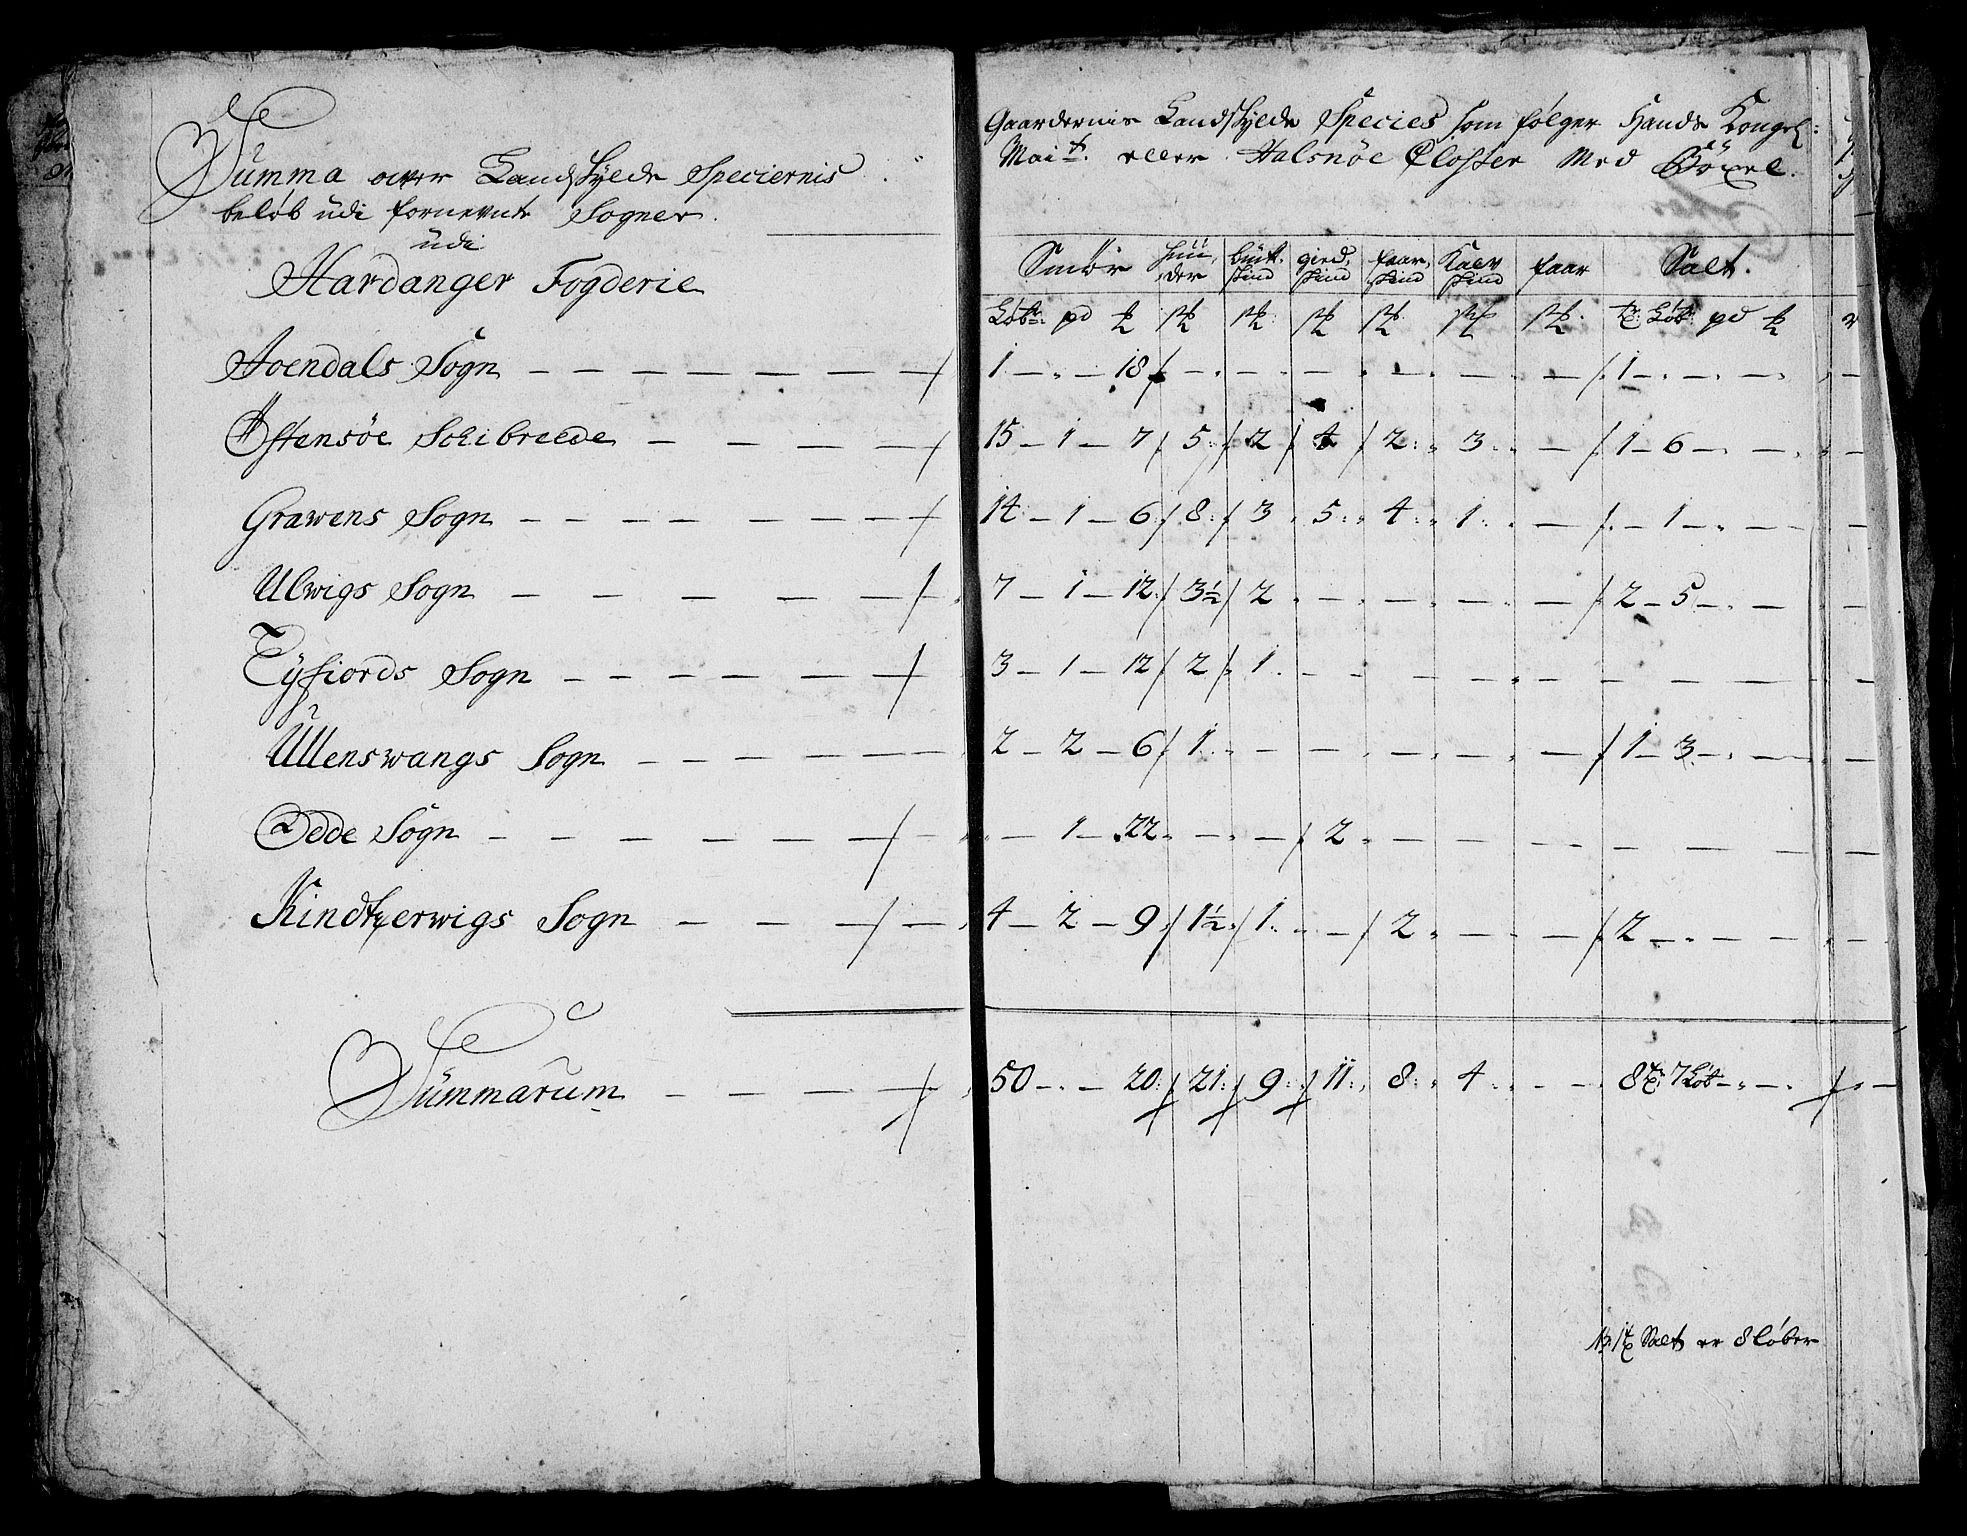 Summa over Landskylds Speciernis
beløb udi fornevnte Sogner
udi
Hardanger Fogderie
Gaardernis Landskylds Species som følger Hands Kongel:
Mai.t eller Halsnöe Closter Med Böxel.
Smör | Huuder | buckskind | giedskind | faarskind | Kalvskind | faar | Salt.
Løb: pd ℔ | st | st | st | st | st | st | tr: Løb: pd ℔
Joendals Sogn — 1 — " — 18 / — " — — — — — /. 1 — " — —
Östensöe Schibreede — 15 — 1 — 7 / 5 / 2 / 4 / 2 " 3 " — / 1 — 6 — "
Grawens Sogn — 14 — 1 — 6 / 8 / 3 " 5 " 4 " 1 " — / " — 1 — "
Ulwigs Sogn — 7 — 1 — 12 / 3½ / 2 " — — — — / 2 — 5 — "
Eyfiords Sogn — 3 — 1 — 12 / 2 / 1 — — — — — —
Ullenswangs Sogn — 2 — 2 — 6 / 1 " — — — — — / 1 — 3 — "
Odde Sogn — " — 1 — 22 " — " — / 2 " — — — — —
Kindtzerwigs Sogn — 4 — 2 — 9 / 1½ / 1 " — / 2 " — — / 2 — " —
Summarum — 50 — " — 20 / 21 / 9 / 11 " 8 " 4 " — — 8 tr: 7 Løb — " —
NB. 1 tr Salt er 8 løber